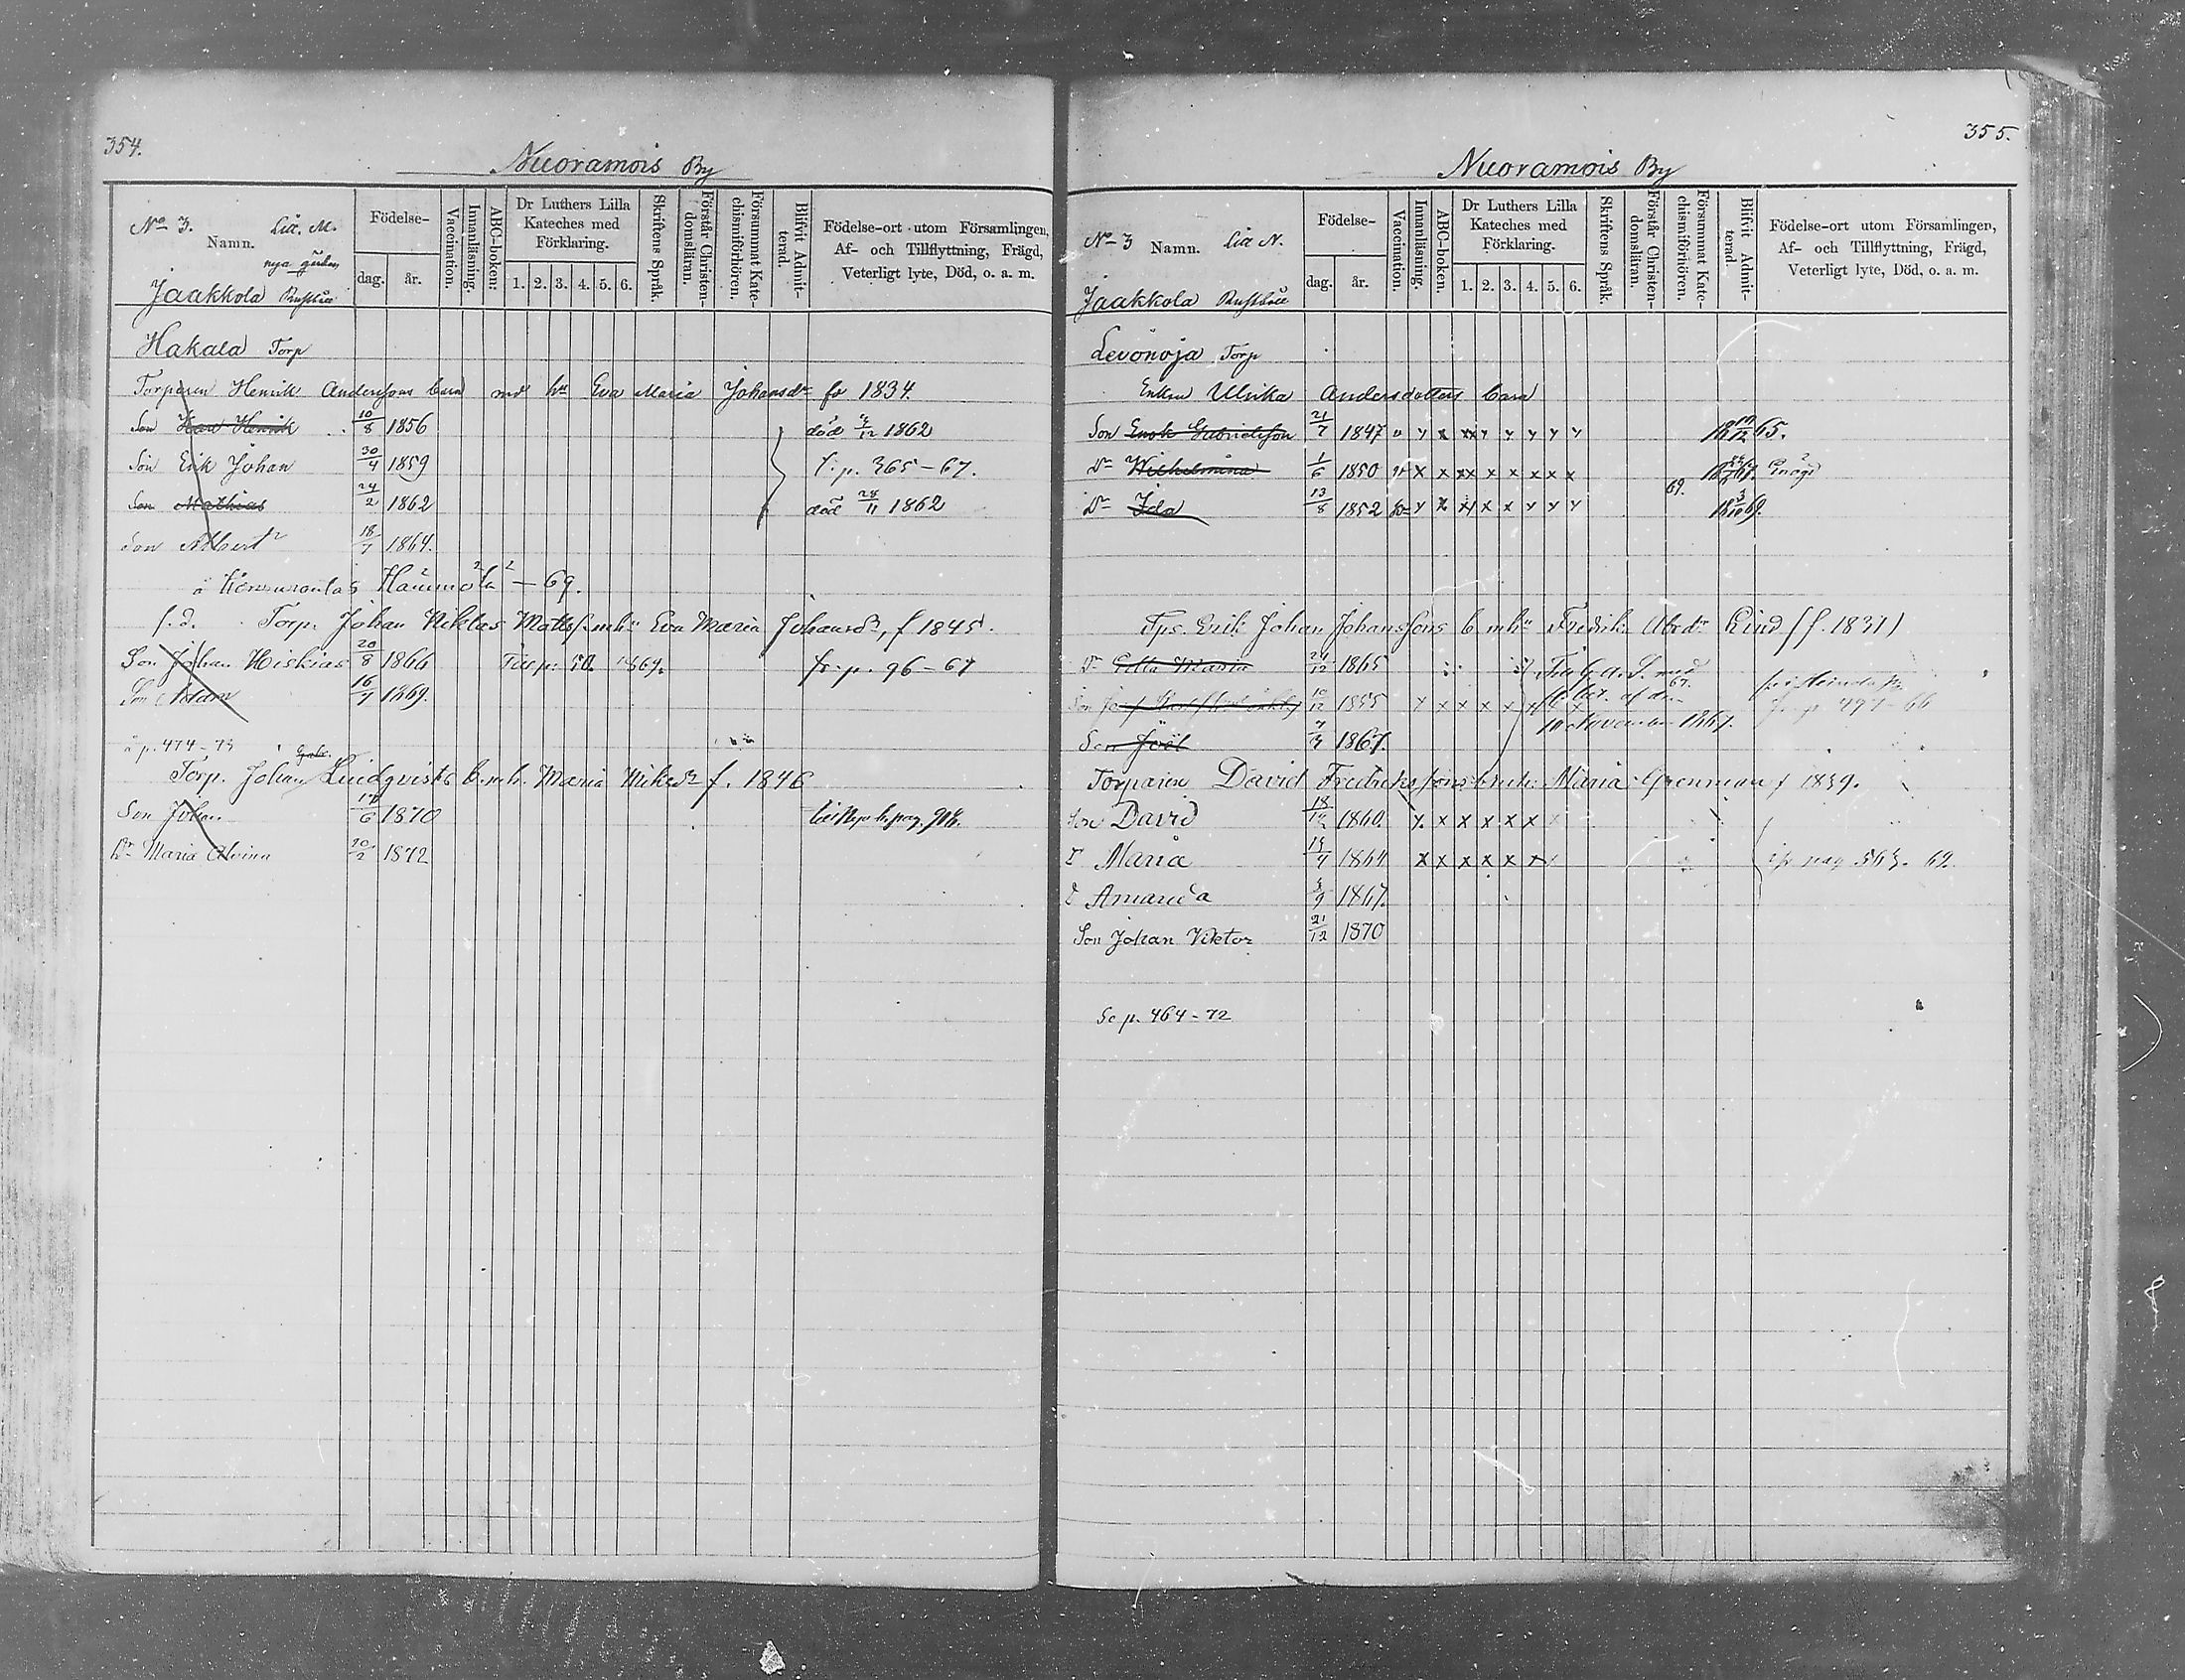 354.
Nuoramois By
No 3. Litt. M.
Namn.
nya gården
Jaakkola Rusthåll
Födelse-
dag. år.
Vaccination.
Innanläsning.
ABC-boken:
Dr Luthers Lilla Kateches med Förklaring.
1. 2. 3. 4. 5. 6.
Skriftens Språk.
Förstår Christen-domsläran.
Försummat Kate-chismiförhören.
Blifvit Admit-terad.
Födelse-ort utom Församlingen,
Af- och Tillflyttning, Frägd,
Veterligt lyte, Död, o. a. m.
Hakala Torp
Torparen Henrik Anderssons barn med hu Eva Maria Johansdr fö 1834.
Son Karl Henrik 10/8 1856 död 4/12 1862
Son Erik Johan 30/4 1859 f. p. 365-67.
Son Mathias 24/2 1862 död 28/11 1862
Son Albert 18/7 1864.
69.
f.d. Torp. Johan Niklas Matts. m hu Eva Maria Johansdr, f 1845.
Son Johan Hiskias 20/8 1866 1869. fr. p. 96-67
Son Adam 16/7 1869.
p. 474-73
Torp. Johan Lindqvists b. m. h. Maria Miksdr f. 1846
Son Johan 17/6 1870
Dr Maria Alvina 20/2 1872
355.
Nuoramois By
No 3 Litt N.
Namn.
Jaakkola Rusthåll
Födelse-
dag. år.
Vaccination.
Innanläsning.
ABC-boken.
Dr Luthers Lilla Kateches med Förklaring.
1. 2. 3. 4. 5. 6.
Skriftens Språk.
Förstår Christen-domsläran.
Försummat Kate-chismiförhören.
Blifvit Admit-terad.
Födelse-ort utom Församlingen,
Af- och Tillflyttning, Frägd,
Veterligt lyte, Död, o. a. m.
Levonoja Torp
Enkan Ulrika Andersdotters barn
Son Enok Gabrielsson 21/7 1847 65.
Dr Wilhelmina 1/6 1850
Dr Ida 13/8 1852 69. 69.
Tps. Erik Johan Johanssons b mhu Fredrika Abrdr Lind (f. 1831)
Dr Maria 24/12 1865
Son 10/12 1855 af den 497-66
10 November 1867.
Son Joël 1867.
Torparen David Fredrikssons b mh: Maria Grenman f 1839.
Son David 18/12 1860.
D Maria 1864 pag 563. 69.
D Amanda 1867.
Son Johan Viktor 21/12 1870
Se p. 464-72